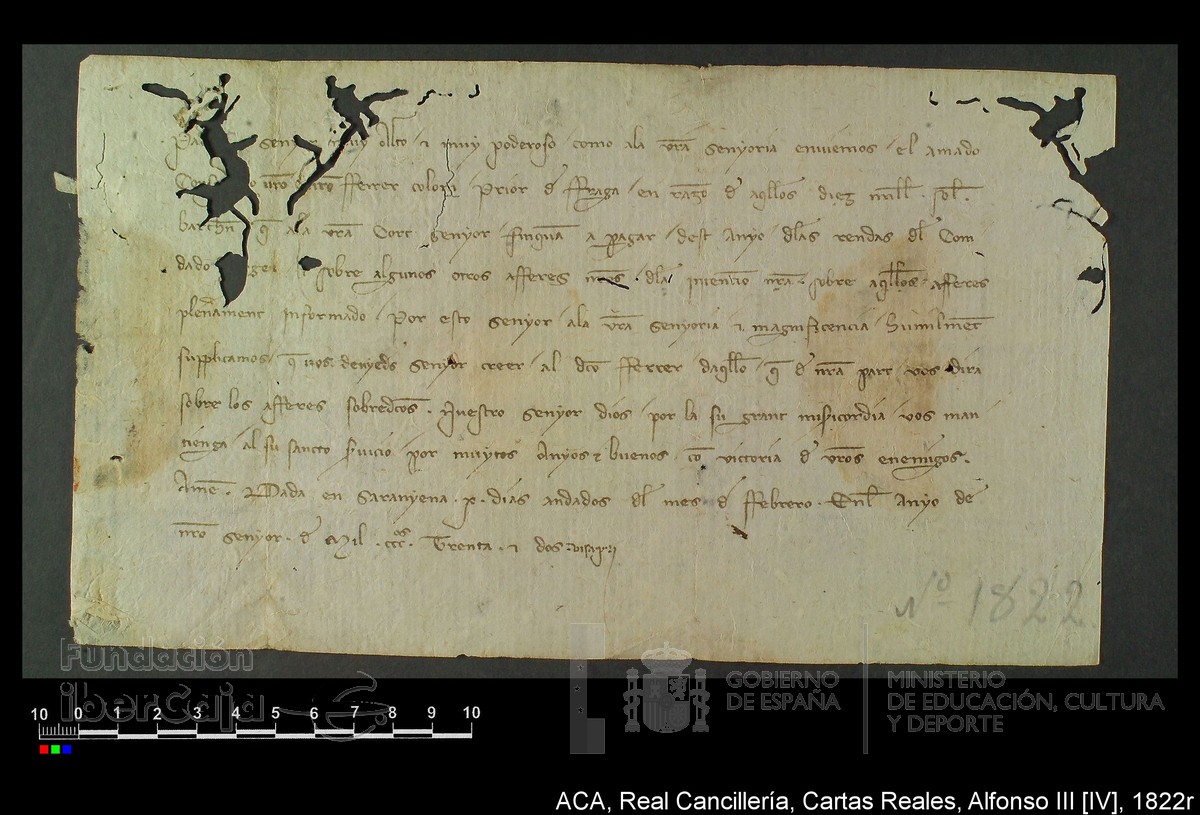 senyor muy Alto ⁊ muy poderoso como ala vr̃a senyoria enviemos el amado
vr̃o nr̃o fferrer colom Prior d̃ ffraga en razo d̃ aq̃llos dieç mill sol
barchñ q̃ ala vr̃a Cort senyor finquã a pagar dest Anyo dlas rendas dl Com
dado sobre algunos otros afferes dla intencio nr̃a sobre aq̃llos afferes
pleñament informado Por esto senyor ala vr̃a senyoria ⁊ magnificencia húmilmẽt
supplicamos q̃ uos denyeds senyor creer al dc̃o fferrer daq̃llo q̃ d̃ nr̃a part vos dira
sobre los afferes sobredc̃os. Nuestro senyor dios por la su grant mis̃icordia vos man
tienga al su sancto s̃uicio por muytos Anyos ⁊ buenos cõ victoria d̃ vr̃os enemigos.
Amẽ. Dada en Saranyena .x. dias andados dl mes d̃ ffebrero. Enl Anyo de
nr̃o senyor. d̃ Mil .cccos. Trenta. ⁊ dos
Nº 1822
Fundación
iberCaja
GOBIERNO
DE ESPAÑA
MINISTERIO
DE EDUCACIÓN, CULTURA
Y DEPORTE
10 0 1 2 3 4 5 6 7 8 9 10
ACA, Real Cancillería, Cartas Reales, Alfonso III [IV], 1822r